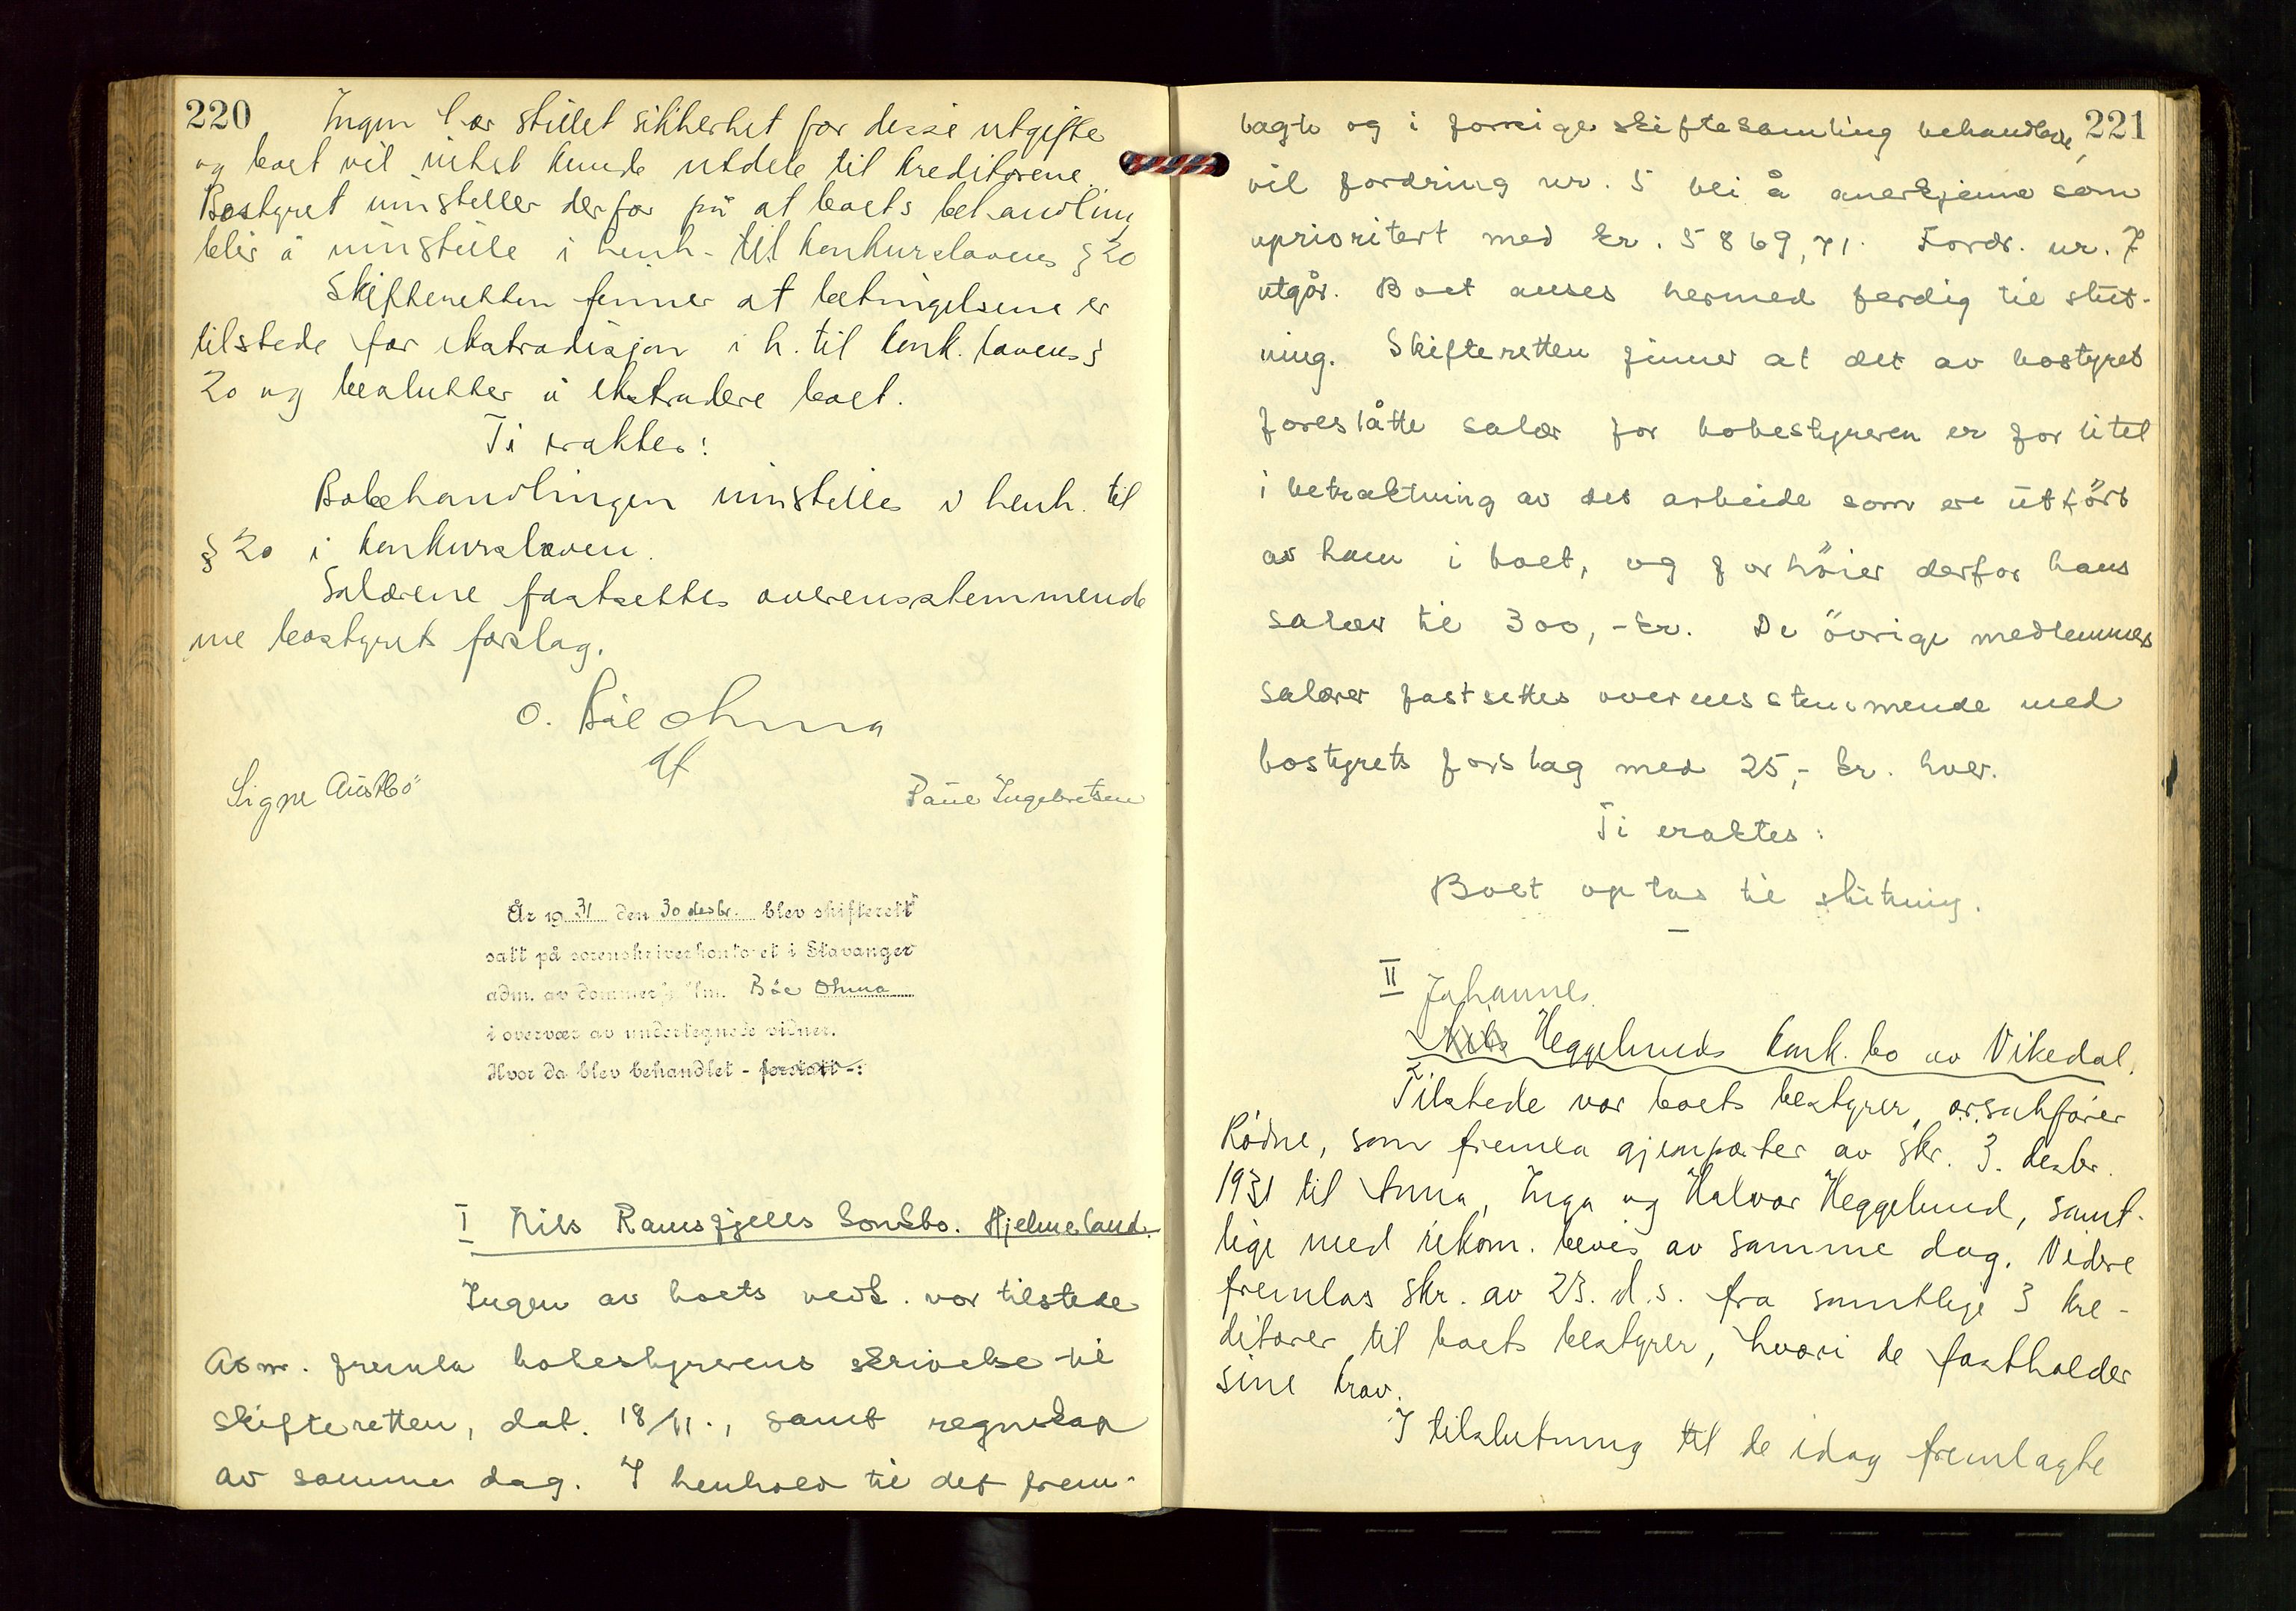 220
Ingen har stillet sikkerhet for disse utgifter
og boet vil intet kunde utdele til kreditorene.
Bostyret innstiller derfor på at boets behandling
blir å innstille i henh. til konkurslovens § 20
Skifteretten finner at betingelsene er
tilstede for ekstradisjon i h. til konk. lovens §
20 og beslutter å ekstradere boet.
Ti eraktes:
Bobehandlingen innstilles i henh. til
§ 20 i konkursloven.
Salærene fastsettes overensstemmende
me bostyrets forslag.
O. Böe Ohma
df
Signe Austbö
Paul Ingebretsen
År 1931 den 30 desbr. blev skifterett
satt på sorenskriverkontoret i Stavanger
adm. av dommerfullm. Böe Ohma
i overvær av undertegnede vidner.
Hvor da blev behandlet - forsatt -:
I Nils Ramsfjells konkbo. Hjelmeland.
Ingen av boets vedk. var tilstede
Adm. fremla bobestyrerens skrivelse til
skifteretten, dat. 18/11., samt regnskap
av samme dag. I henhold til det frem-
221
lagte og i forrige skiftesamling behandlede,
vil fordring nr. 5 bli å anerkjenne som
uprioritert med kr. 5869,71. Fordr. nr. 7
utgår. Boet anses hermed ferdig til slut-
ning. Skifteretten finner at det av bostyret
foreslåtte salær for bobestyreren er for litet
i betraktning av det arbeide som er utfört
av ham i boet, og forhöier derfor hans
salær til 300,- kr. De övrige medlemmers
salærer fastsettes overensstemmende med
bostyrets forslag med 25,- kr. hver.
Ti eraktes:
Boet optas til slutning.
II Johannes
Nils Heggelunds konk. bo av Vikedal.
Tilstede var boets bestyrer, o.r.sakfører
Rødne, som fremla gjenparter av skr. 3. desbr.
1931 til Anna, Inga og Halvor Heggelund, samt-
lige med rekom. bevis av samme dag. Videre
fremlas skr. av 23. d.s. fra samtlige 3 kre-
ditorer til boets bestyrer, hvori de fastholder
sine krav.
I tilslutning til de idag fremlagte